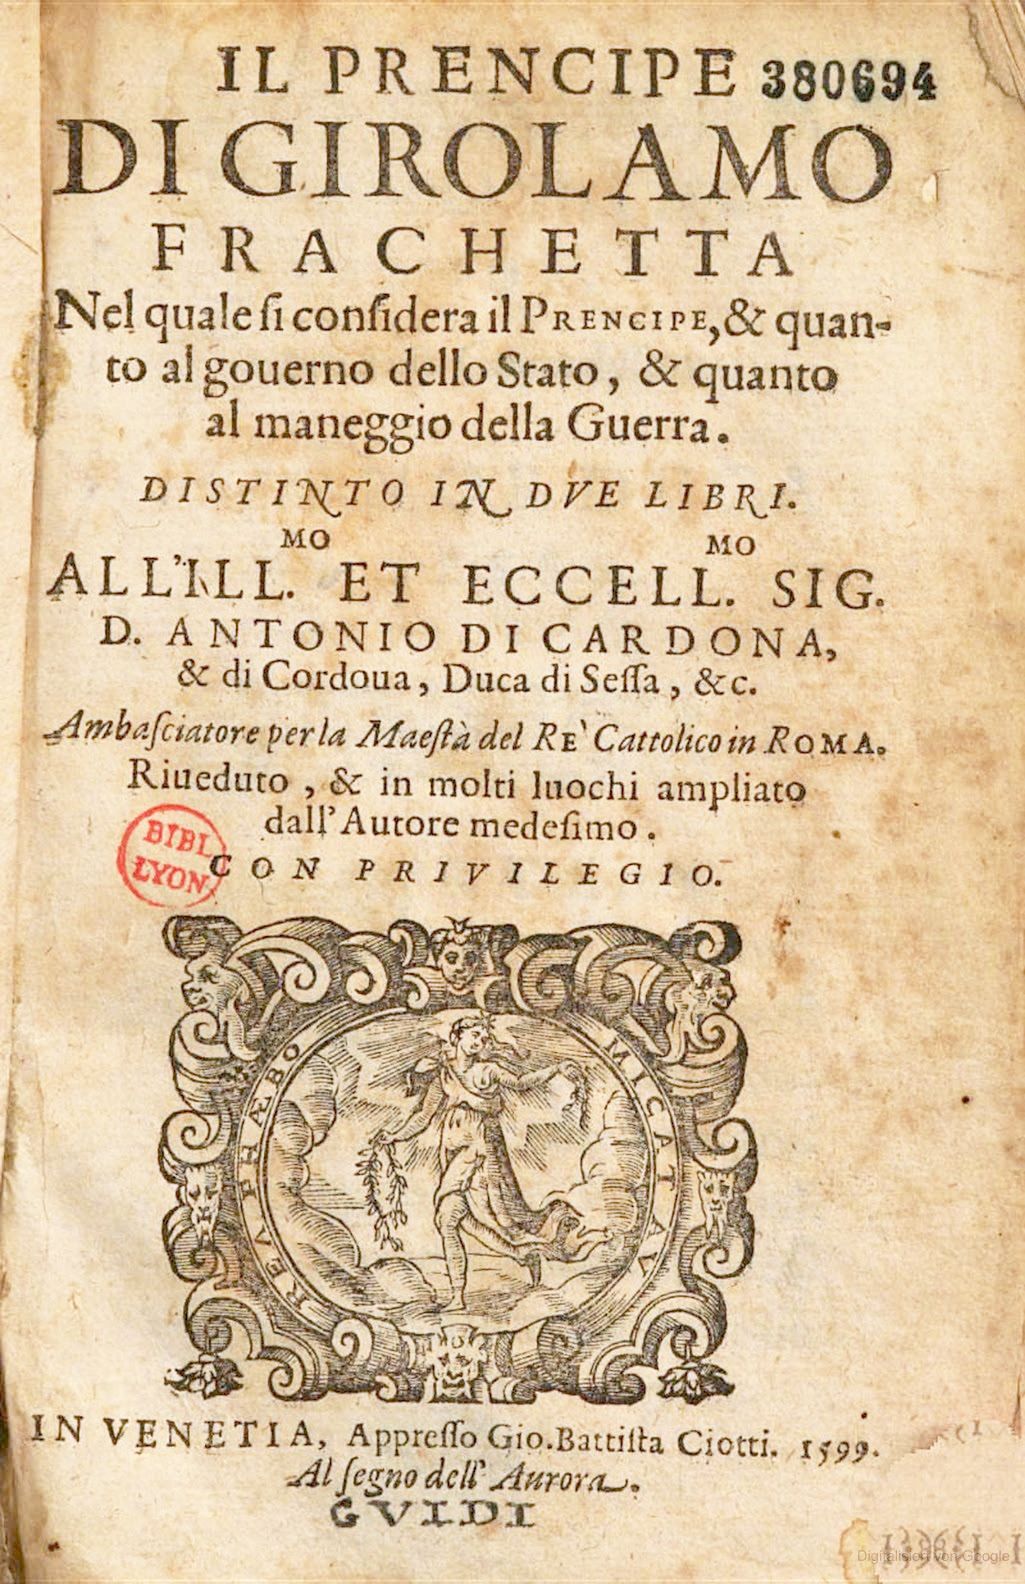 IL PRENCIPE 380694
DI GIROLAMO
FRACHETTA
Nel quale ſi conſidera il PRENCIPE, & quan-
to al gouerno dello Stato, & quanto
al maneggio della Guerra.
DISTINTO IN DVE LIBRI.
MO MO
ALL'ILL. ET ECCELL. SIG.
D. ANTONIO DI CARDONA,
& di Cordoua, Duca di Seſſa, &c.
Ambaſciatore per la Maeſtà del RE' Cattolico in ROMA.
Riueduto, & in molti luochi ampliato
dall'Autore medeſimo.
BIBL
LYON
CON PRIVILEGIO.
REA PHÆBO MICAT AV
IN VENETIA, Appreſſo Gio. Battiſta Ciotti. 1599.
Al ſegno dell'Aurora.
GVIDI
Digitalisiert von Google